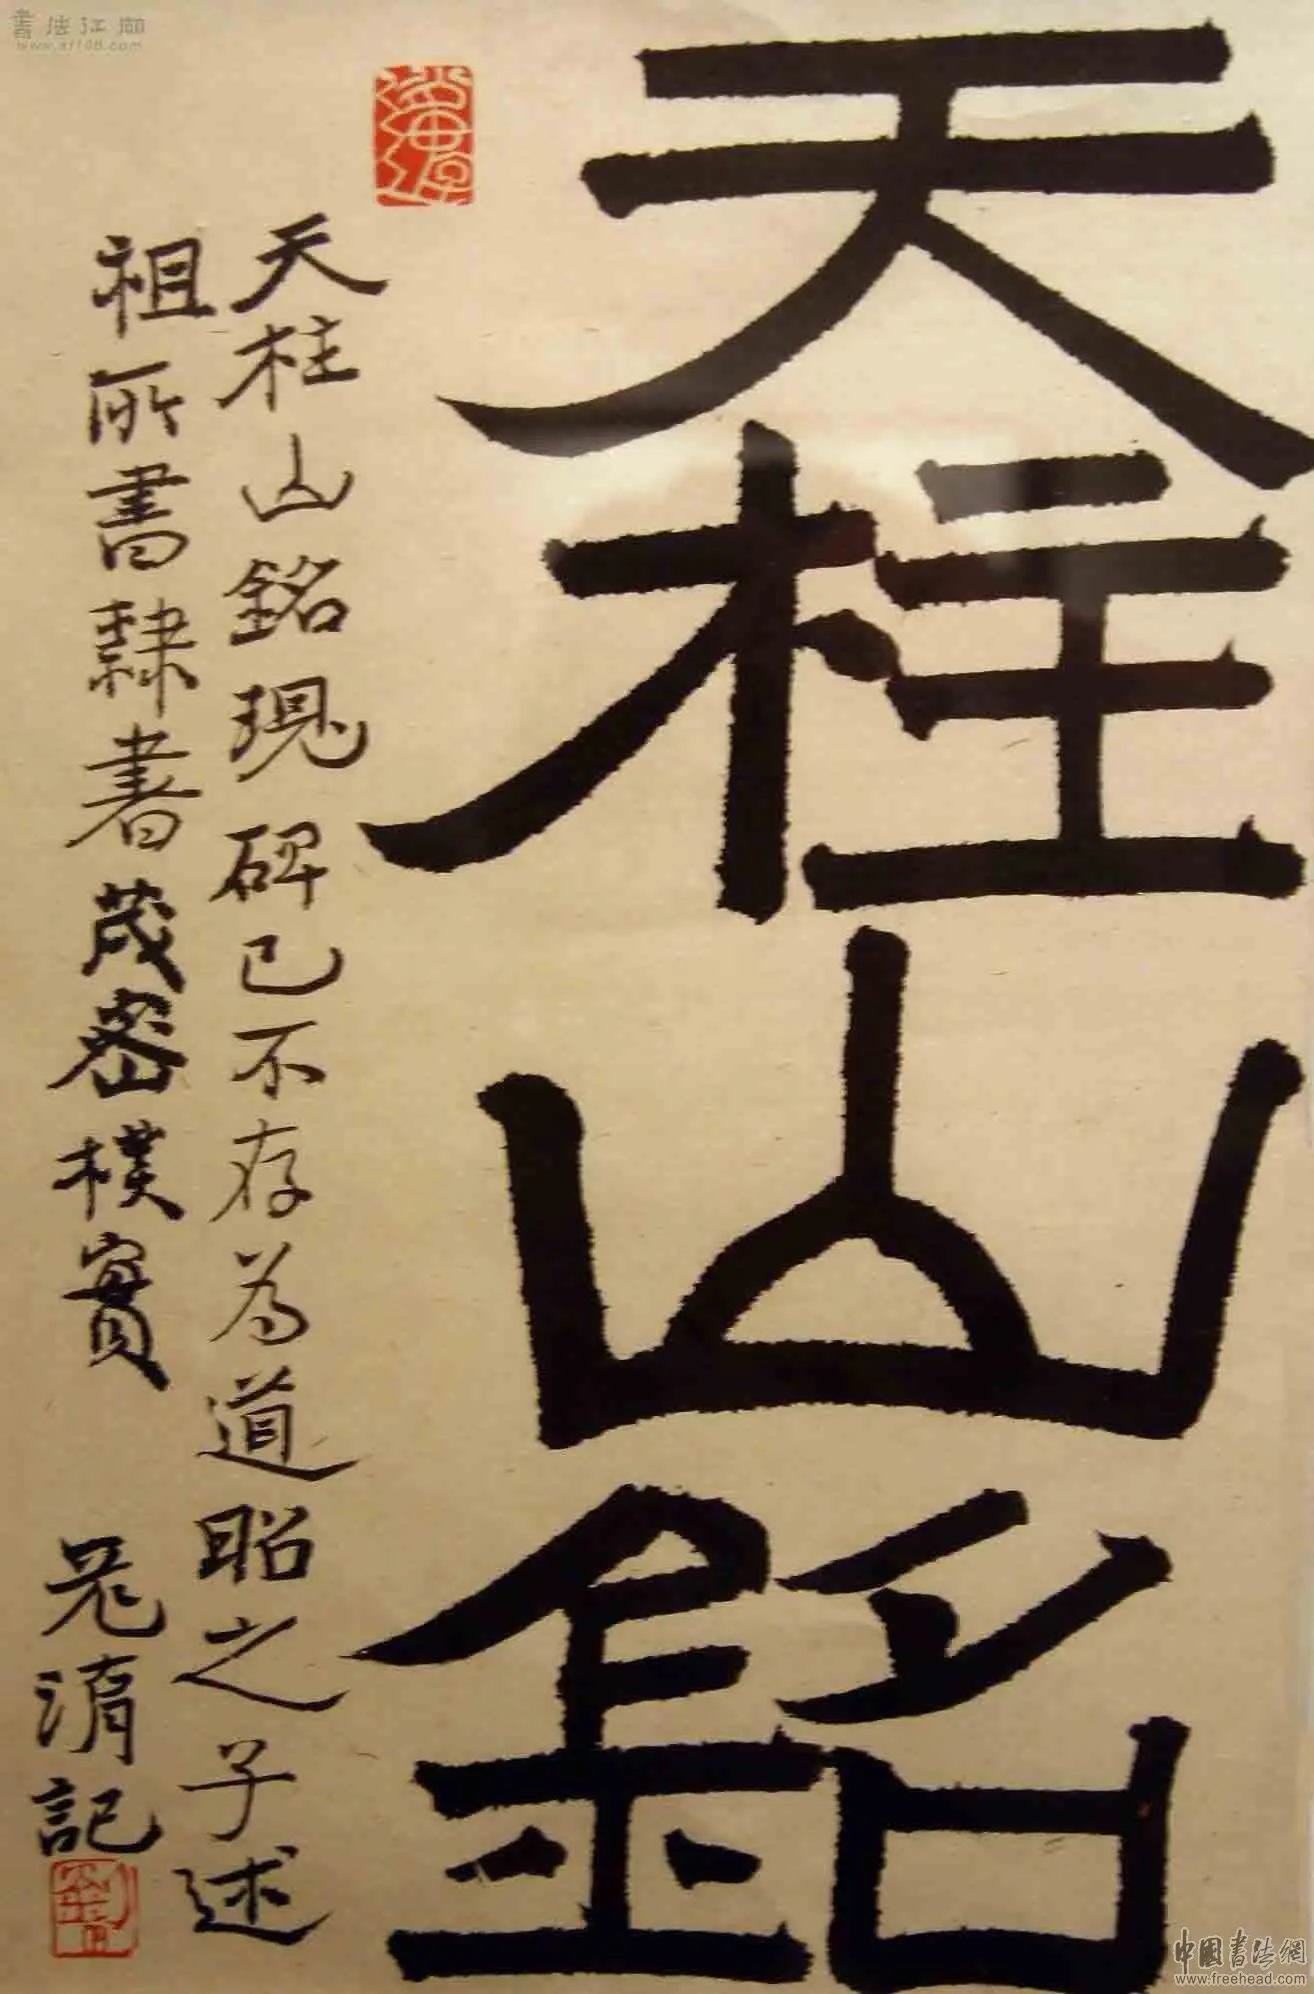 天柱山銘
天柱山銘現碑已不存為道昭之子述
祖所書隸書茂密樸實 記
書法江湖
www.sf108.com
中國書法網
www.freehead.com